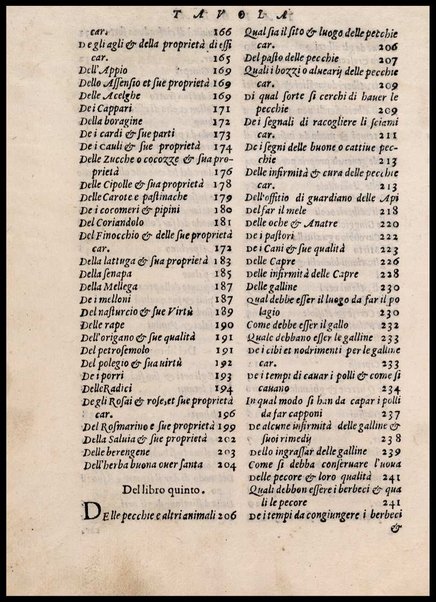 TAVOLA
car. 166
De gli agli & della proprietà di essi
car. 165
Dell'Appio 169
Dello Assensio et sue proprietà 169
Delle Acelghe 169
De i Cappari 171
Della boragine 172
De i cardi & sue parti 173
De i Cauli & sue proprietà 174
Delle Zucche o cocozze & sua pro-
prietà 176
Delle Cipolle & sua proprietà 178
Delle Carote e pastinache 179
De i cocomeri & pipini 180
Del Coriandolo 181
Del Finocchio & delle sue proprietà
car. 172
Della lattuga & sua proprietà 183
Della senapa 185
Della Meliega 187
De i melloni 187
Del nasturcio & sue Virtù 189
Delle rape 190
Dell'origano & sue qualità 191
Del petrosemolo 191
Del polegio & sua uirtù 192
De i porri 193
Delle Radici 194
De gli Rosai & rose, et sue proprietà
car. 196
Del Rosmarino & sue proprietà 199
Della Saluia & sue proprietà 202
Delle berengene 203
Dell'herba buona ouer santa 204
Del libro quinto.
DElle pecchie e altri animali 206
Qual sia il sito & luogo delle pecchie
car. 206
Del pasto delle pecchie 207
Quali i bozzi o aluearij delle pecchie
car. 209
Di qual sorte si cerchi di hauer le
pecchie 209
De i segnali di racogliere li sciami
car. 211
De i segni delle buone o cattiue pec-
chie 213
Delle infirmità & cura delle pecchie
car. 213
Dell'offitio di guardiano delle Api
Del far il mele 218
Delle oche & Anatre 220
De i pastori 222
De i Cani & sue qualità 223
Delle Capre 226
Delle infirmità delle Capre 228
Delle galline 230
Qual debbe esser il luogo da far il po
lagio 230
Come debbe esser il gallo 232
Quale debbano esser le galline 233
De i cibi et nodrimenti per le galline
car. 233
De i tempi di cauar i polli & come si
cauano 234
In qual modo si han da capar i polli
da far capponi 237
De alcune infirmità delle galline &
suoi rimedij 238
Dello ingrassar delle galline 239
Come si debba conseruare l'oua
Delle pecore & loro qualità 241
Quali debbon essere i berbeci & qua
li le pecore 241
De i tempi da congiungere i berbeci
&